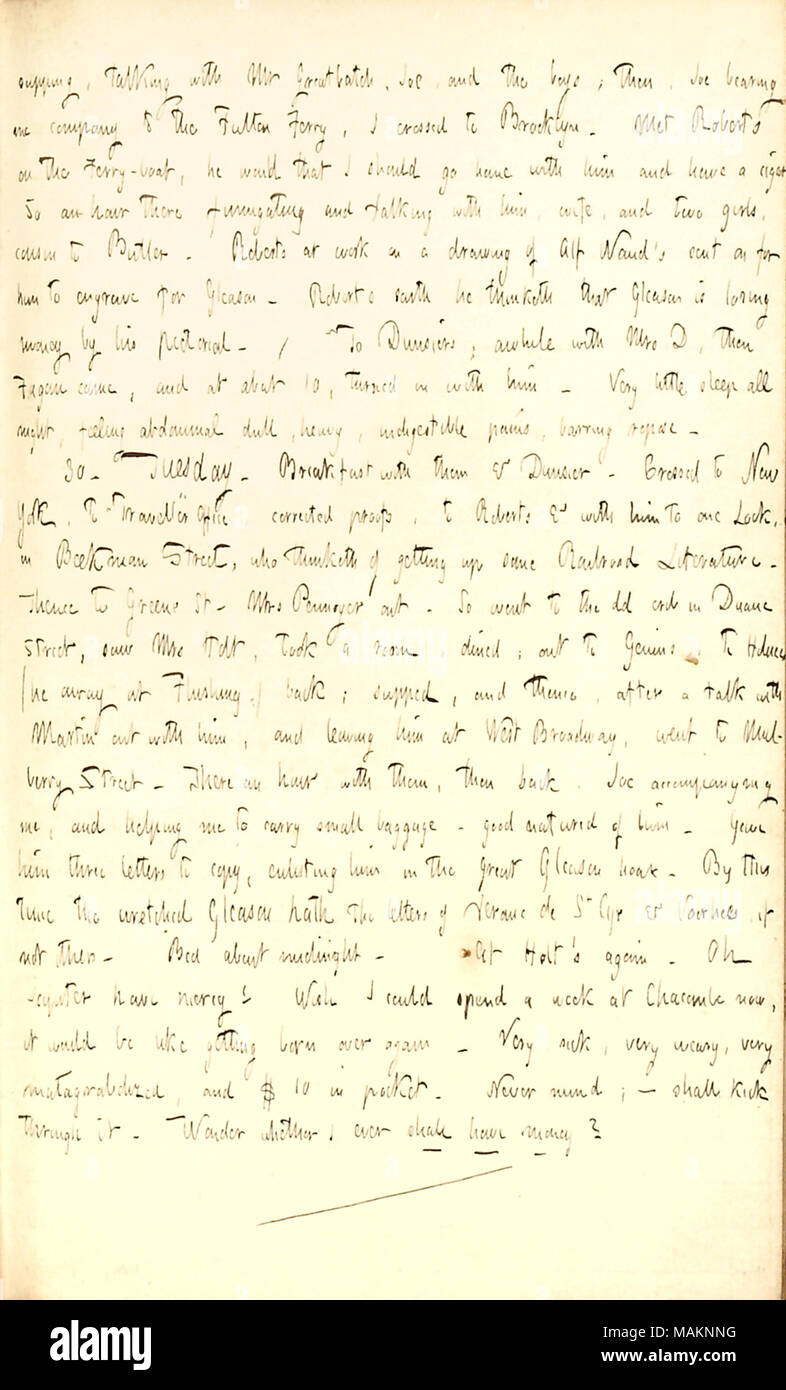 supping, talking with Mr Greatbatch, Joe, and the boys; then, Joe bearing
me company to the Fulton Ferry, I crossed to Brooklyn. Met Roberts
on the Ferry-boat, he would that I should go home with him and have a cigar
So an hour there fumigating and talking with him, wife, and two girls,
cousin to Butler. Roberts at work on a drawing of Alf Waud's sent on for
him to engrave for Gleason. Roberts saith he thinketh that Gleason is losing
money by his pictorial. / To Dunsiers, awhile with Mrs D, then
Fagan came, and at about 10, turned in with him. Very little sleep all
night, feeling abdominal dull, heavy, indigestible pains, barring repose.
30. Tuesday. Breakfast with them & Dunsier. Crossed to New
York, To Traveller office corrected proofs, to Roberts & with him to one Lock,
in Beekman Street, who thinketh of getting up some Railroad Literature.
Thence to Greene St. Mrs Pennoyer out. So went to the old crib in Duane
Street, saw Mrs Holt, took a room, dined; out to Genins, to Holmes
(he away at Flushing,) back; supped, and thence, after a talk with
Martin out with him, and leaving him at West Broadway, went to Mul-
berry Street. There an hour with them, then back. Joe accompanying
me, and helping me to carry small baggage. good natured of him. Gave
him three letters to copy, enlisting him in the great Gleason hoax. By this
time the wretched Gleason hath the letters of Verance de St Cyr & Voorhees if
not others. Bed about midnight. At Holt's again. Oh
Jupiter have mercy! Wish I could spend a week at Chacombe now,
it would be like getting born over again. Very sick, very weary, very
matagrabolized, and $10 in pocket. Never mind; — shall kick
through it. Wonder whether I ever shall have money?
alamy
Image ID: MAKNNG
www.alamy.com